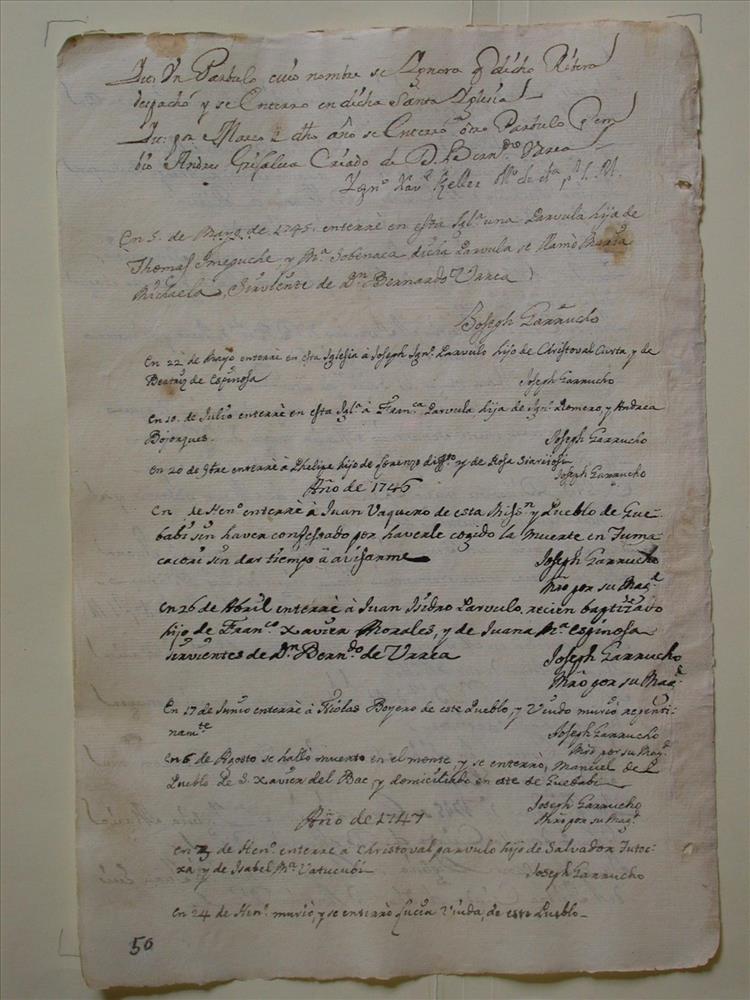 Un Parbulo cuio nombre se Ignora q̃ dicho Ribera
despachó y se Enterro en dicha Santa Iglesia
por Marzo 2 dho año se Enterró otro Parbulo
Andres Grisalva Criado de D. Bern.do Urrea
Ygn.o Xav.r Keller Mro de
En 5. de Mayo de 1745. enterrè en esta Igl.a una Parvula hija de
Thomas Imeguche y M.a dicha Parvula se llamò Maria
Michaela, Sirviente de D.n Bernardo Urrea
Joseph Garrucho
En 22 de Mayo enterrè en esta Iglesia à Joseph Ign.o Parvulo hijo de Christoval Curta y de
Beatriz de Espinosa Joseph Garrucho
En 10. de Julio enterrè en esta Igl.a à Fran.ca Parvula hija de Ign.o Romero, y Andrea
Bojorques. Joseph Garrucho
En 20 de 9bre enterrè à Phelipe hijo de Lorenzo y de Rosa
Joseph Garrucho
Año de 1746
En de Hen.o enterrè à Juan Vaquero de esta Miss.n y Pueblo de Gue-
babi sin haver confessado por haverle cogido la muerte en Tuma
cacori sin dar tiempo à avisarme Joseph Garrucho
Mro por su Mag.d
En 26 de Abril enterrè à Juan Isidro Parvulo, recien baptizado
hijo de Fran.co Xavier Morales, y de Juana M.a Espinosa
sirvientes de D.n Bern.do de Urrea Joseph Garrucho
Mro por su Mag.d
En 17 de Junio enterrè à Nicolas Boyero de este Pueblo, y Viudo murió repenti-
nam.te Joseph Garrucho
Mro por su Mag.d
En 6 de Agosto se hallò muerto en el monte, y se enterrò, Manuel de l
Pueblo de S. Xavier del Bac, y domiciliado en este de Guebabi
Joseph Garrucho
Mro por su Mag.d
Año de 1747
En 3 de Hen.o enterrè à Christoval parvulo hijo de Salvador Tutoc-
xa, y de Isabel M.a Vatucubi Joseph Garrucho
En 24 de Hen.o murió, y se enterrò Lucia Viuda, de este Pueblo
50